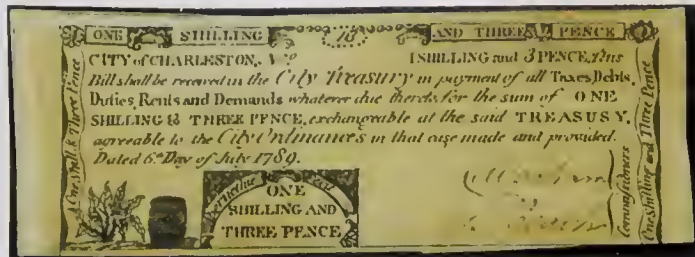 ONE SHILLING 18 AND THREE PENCE
CITY of CHARLESTON, No. 1 SHILLING and 3 PENCE, This
Bill shall be received in the City Treasury in payment of all Taxes, Debts,
Duties, Rents and Demands whatever due thereto, for the sum of ONE
SHILLING & THREE PENCE, exchangeable at the said TREASUSY,
agreeable to the City Ordinances in that case made and provided.
Dated 6th Day of July 1789.
ONE
SHILLING AND
THREE PENCE
One Shill. & Three Pence
Commissioners
One Shilling and Three Pence